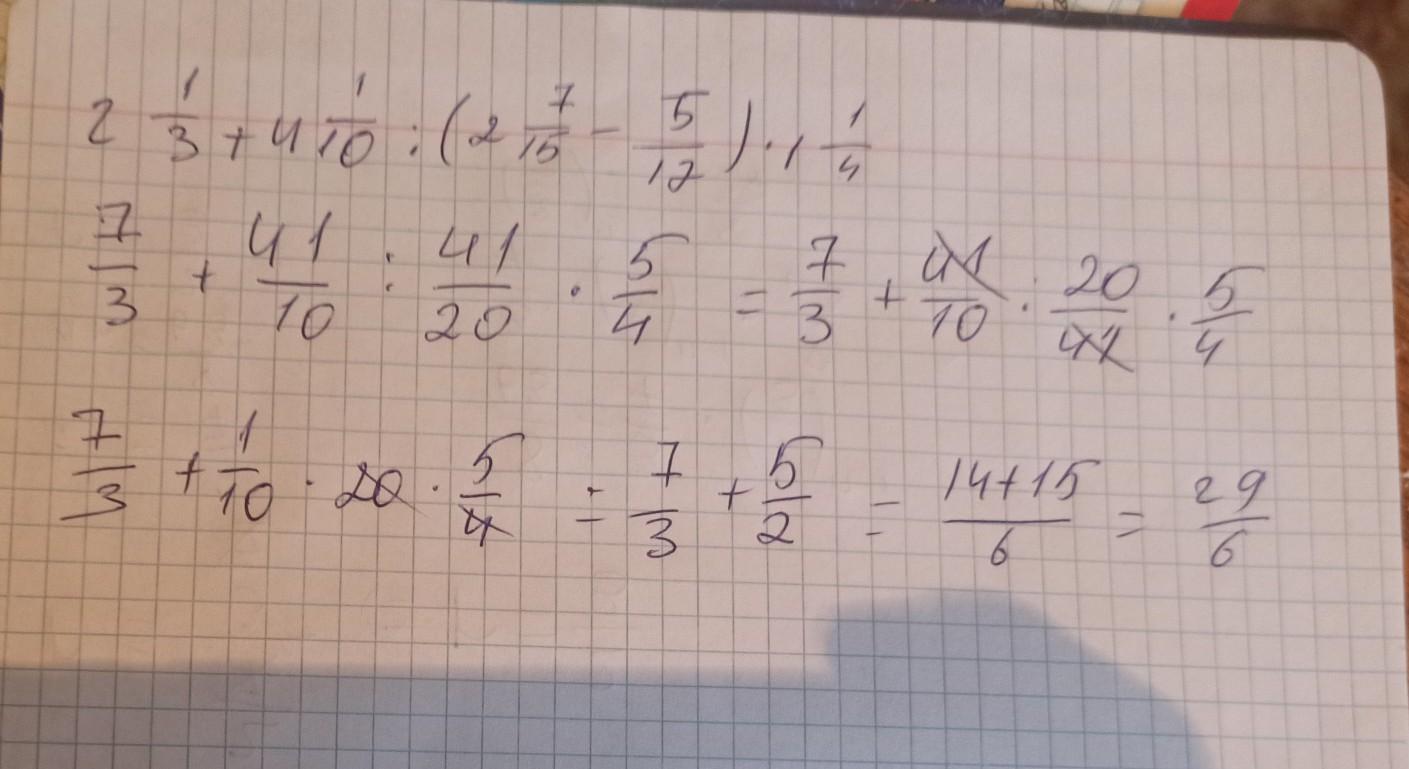 2 1/3 + 4 1/10 : (2 7/15 - 5/12) · 1 1/4
7/3 + 41/10 : 41/20 · 5/4 = 7/3 + 41/10 · 20/41 · 5/4
7/3 + 1/10 · 20 · 5/4 = 7/3 + 5/2 = 14+15/6 = 29/6